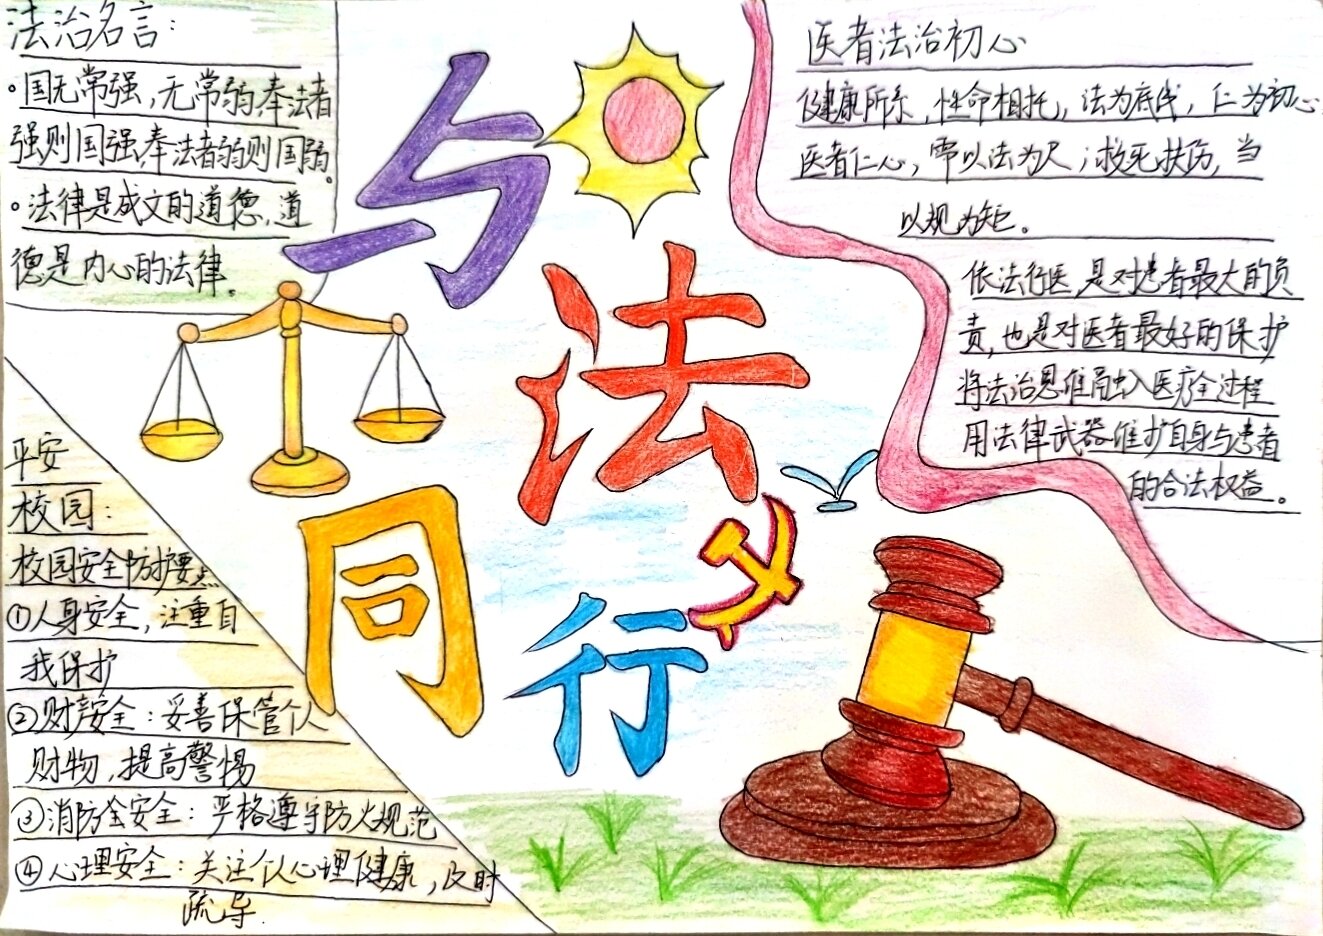 法治名言：
·国无常强，无常弱，奉法者
强则国强，奉法者弱则国弱。
·法律是成文的道德，道
德是内心的法律。
与法同行
医者法治初心
健康所系，性命相托，法为底线，仁为初心
医者仁心，需以法为尺；救死扶伤，当
以规为矩。
依法行医，是对患者最大的负
责，也是对医者最好的保护
将法治思维融入医疗全过程
用法律武器维护自身与患者
的合法权益。
平安
校园：
校园安全防护要点
①人身安全，注重自
我保护
②财产安全：妥善保管个人
财物，提高警惕
③消防全安全：严格遵守防火规范
④心理安全：关注个人心理健康，及时
疏导.